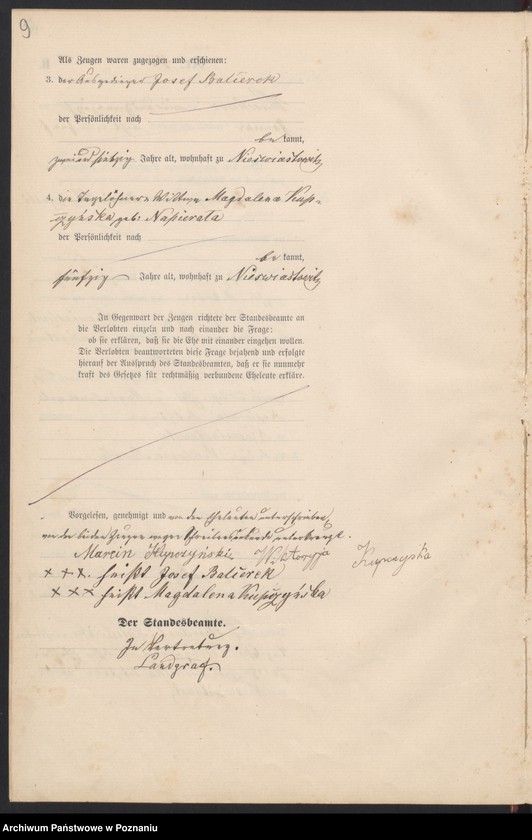 9
Als Zeugen waren zugezogen und erschienen:
3. der Ausgedinger Josef Balcerek
der Persönlichkeit nach
be kannt,
zweiundsiebzig Jahre alt, wohnhaft zu Nieswiastowitz
4. die Wittwe Magdalena Kup-
czyńska geb. Napierała
der Persönlichkeit nach
be kannt,
fünfzig Jahre alt, wohnhaft zu Nieswiastowitz
In Gegenwart der Zeugen richtete der Standesbeamte an
die Verlobten einzeln und nach einander die Frage:
ob sie erklären, daß sie die Ehe mit einander eingehen wollen.
Die Verlobten beantworteten diese Frage bejahend und erfolgte
hierauf der Ausspruch des Standesbeamten, daß er sie nunmehr
kraft des Gesetzes für rechtmäßig verbundene Eheleute erkläre.
Vorgelesen, genehmigt und von den Eheleuten unterschrieben,
von den beiden Zeugen wegen Schreibensunkunde unterkreuzt.
Marcin Kupczyński Wiktoryja Kupczyska
+ + +. heißt Josef Balcerek
+ + + heißt Magdalena Kupczyńska
Der Standesbeamte.
In Vertretung.
Landgraf.
Archiwum Państwowe w Poznaniu